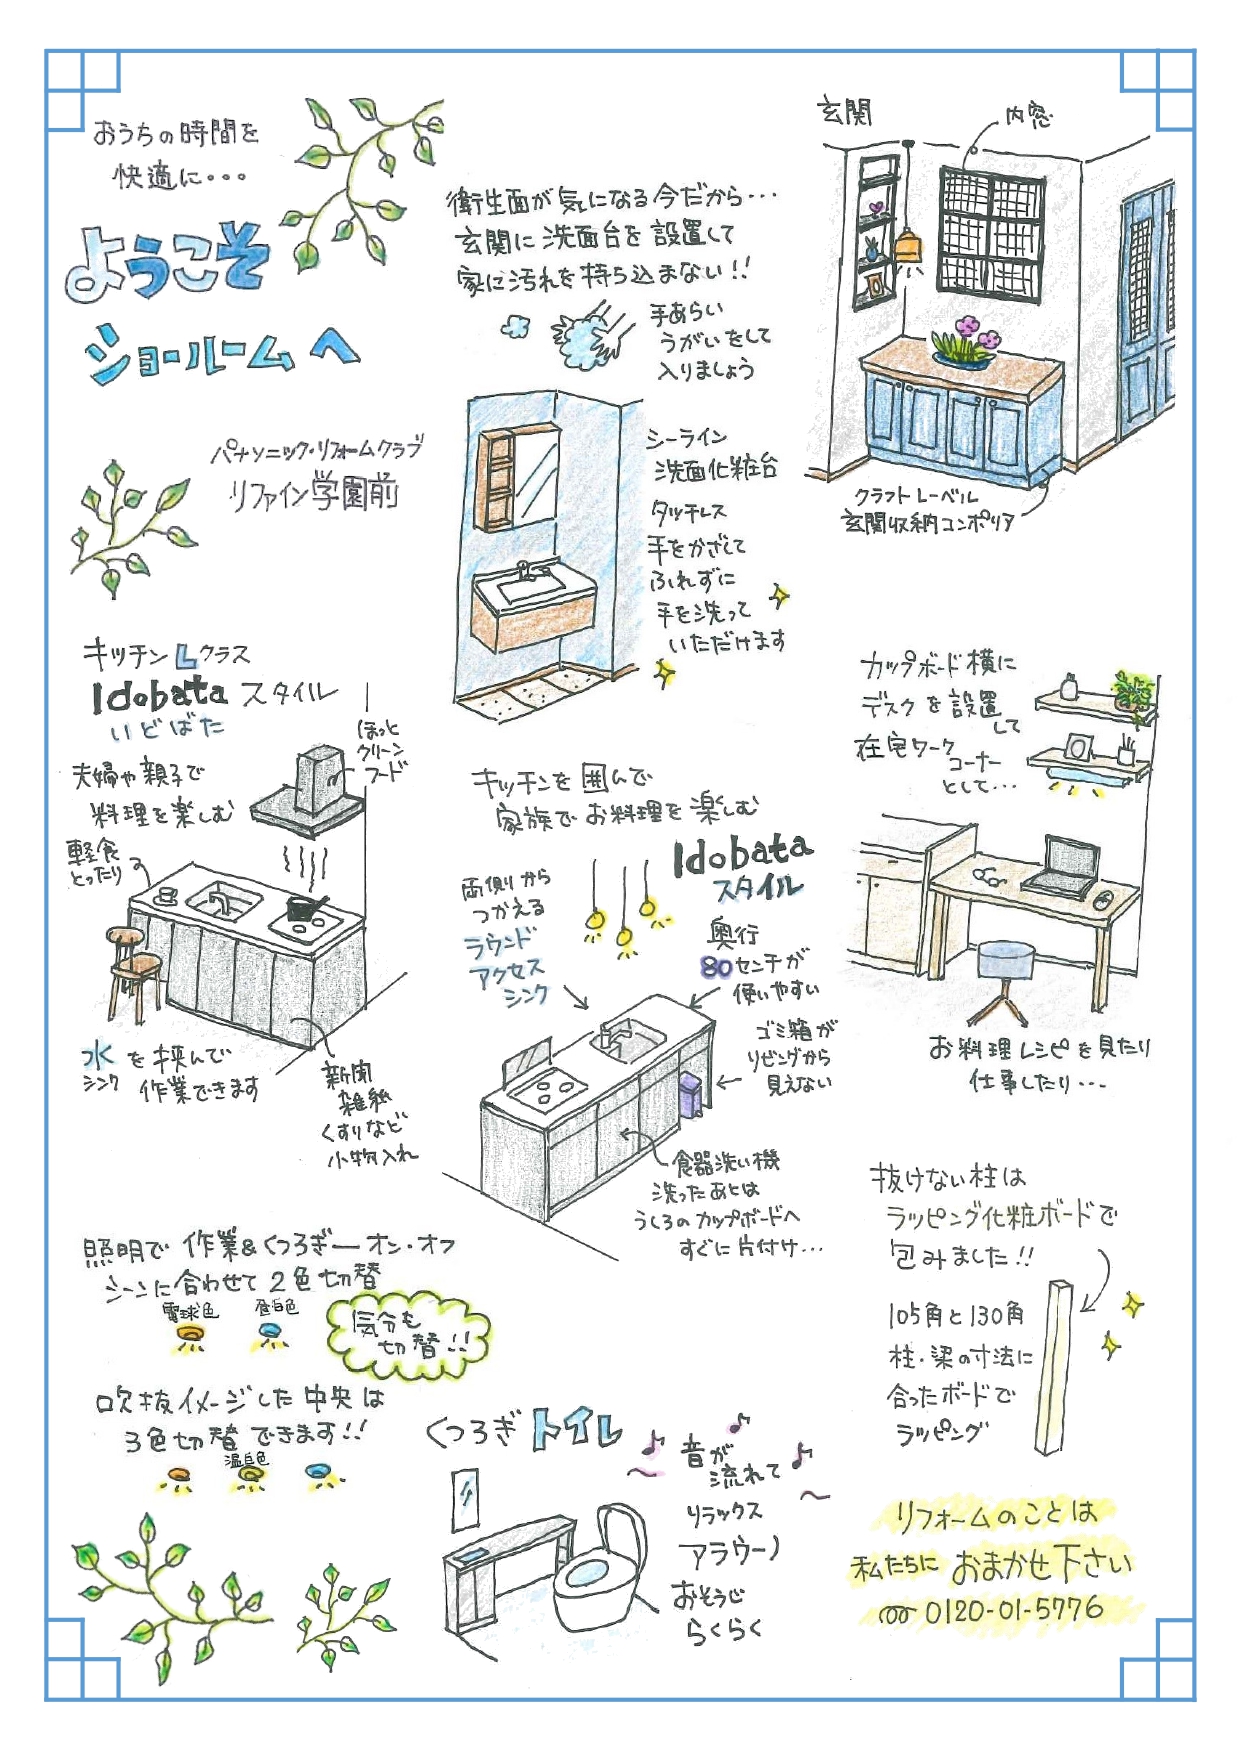 おうちの時間を
快適に・・・
ようこそ
ショールームへ
パナソニック・リフォームクラブ
リファイン学園前
衛生面が気になる今だから・・・
玄関に洗面台を設置して
家に汚れを持ち込まない!!
手あらい
うがいをして
入りましょう
シーライン
洗面化粧台
タッチレス
手をかざして
ふれずに
手を洗って
いただけます
玄関
内窓
クラフトレーベル
玄関収納コンポリア
キッチンLクラス
Idobataスタイル
いどばた
夫婦や親子で
料理を楽しむ
ほっと
クリーン
フード
軽食
とったり
水を挟んで
シンク
作業できます
新聞
雑紙
くすりなど
小物入れ
キッチンを囲んで
家族でお料理を楽しむ
Idobata
スタイル
両側から
つかえる
ラウンド
アクセス
シンク
奥行
80センチが
使いやすい
ゴミ箱が
リビングから
見えない
食器洗い機
洗ったあとは
うしろのカップボードへ
すぐに片付け・・・
カップボード横に
デスクを設置
して
在宅ワーク
コーナー
として・・・
お料理レシピを見たり
仕事したり・・・
照明で作業&くつろぎ―オン・オフ
シーンに合わせて2色切替
電球色
昼白色
気分も
切替!!
吹抜イメージした中央は
3色切替できます!!
温白色
くつろぎトイレ
音が
流れて
リラックス
アラウーノ
おそうじ
らくらく
抜けない柱は
ラッピング化粧ボードで
包みました!!
105角と130角
柱・梁の寸法に
合ったボードで
ラッピング
リフォームのことは
私たちにおまかせ下さい
0120-01-5776